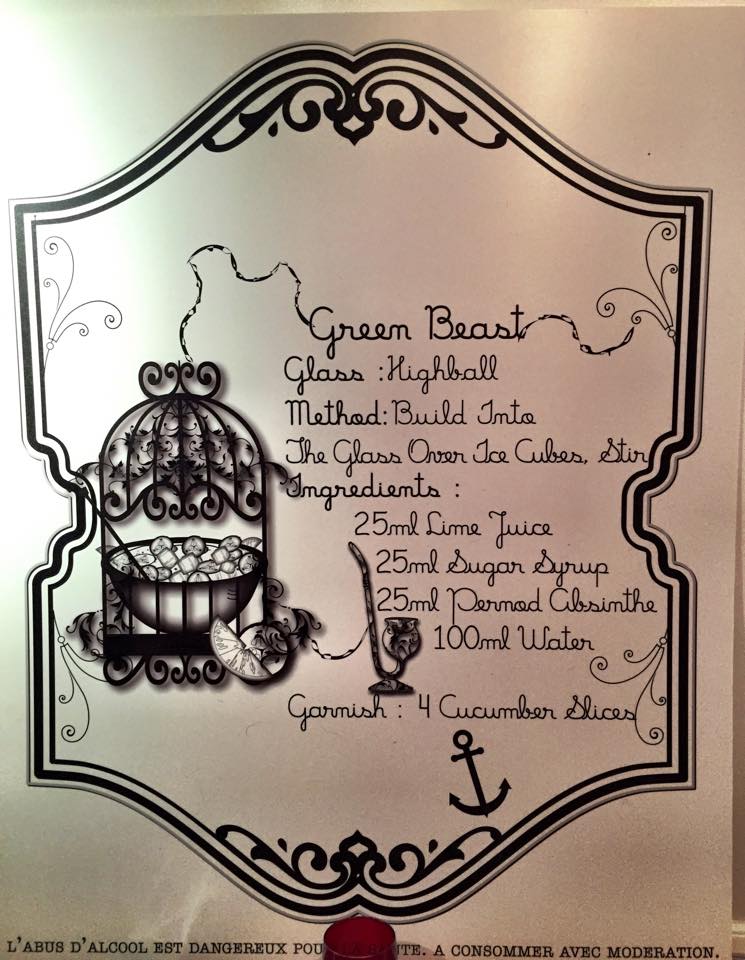 Green Beast
Glass : Highball
Method: Build Into
The Glass Over Ice Cubes, Stir
Ingredients :
25ml Lime Juice
25ml Sugar Syrup
25ml Pernod Absinthe
100ml Water
Garnish : 4 Cucumber Slices
L'ABUS D'ALCOOL EST DANGEREUX POUR LA SANTE. A CONSOMMER AVEC MODERATION.